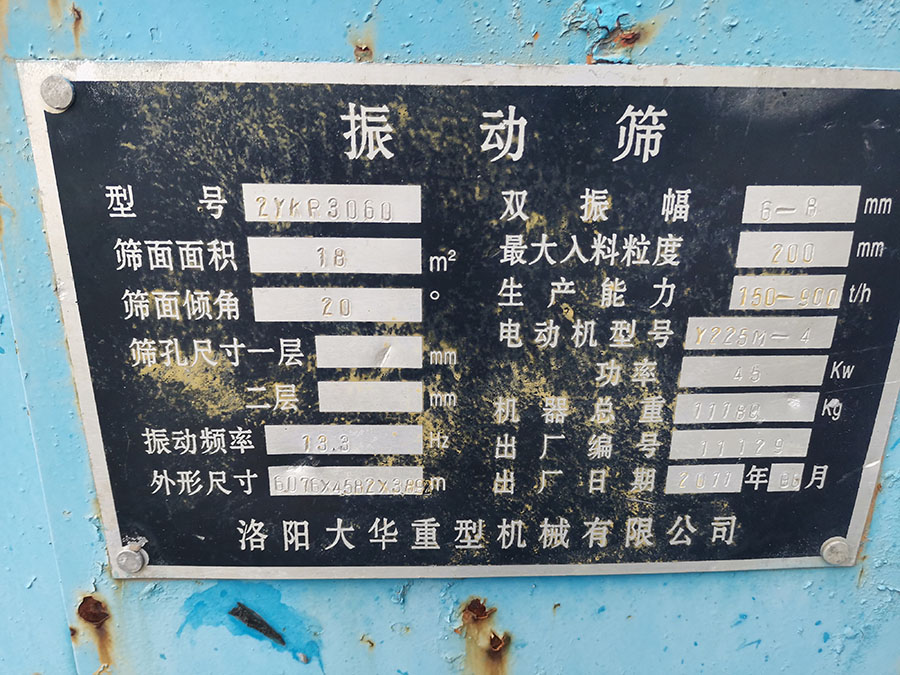 振动筛
型号 2YKR3060
筛面面积 18 m²
筛面倾角 20 °
筛孔尺寸一层 mm
二层 mm
振动频率 13.3 Hz
外形尺寸 m
双振幅 6-8 mm
最大入料粒度 200 mm
生产能力 150-900 t/h
电动机型号 Y225M-4
功率 45 Kw
机器总重 Kg
出厂编号 11129
出厂日期 2011年 月
洛阳大华重型机械有限公司